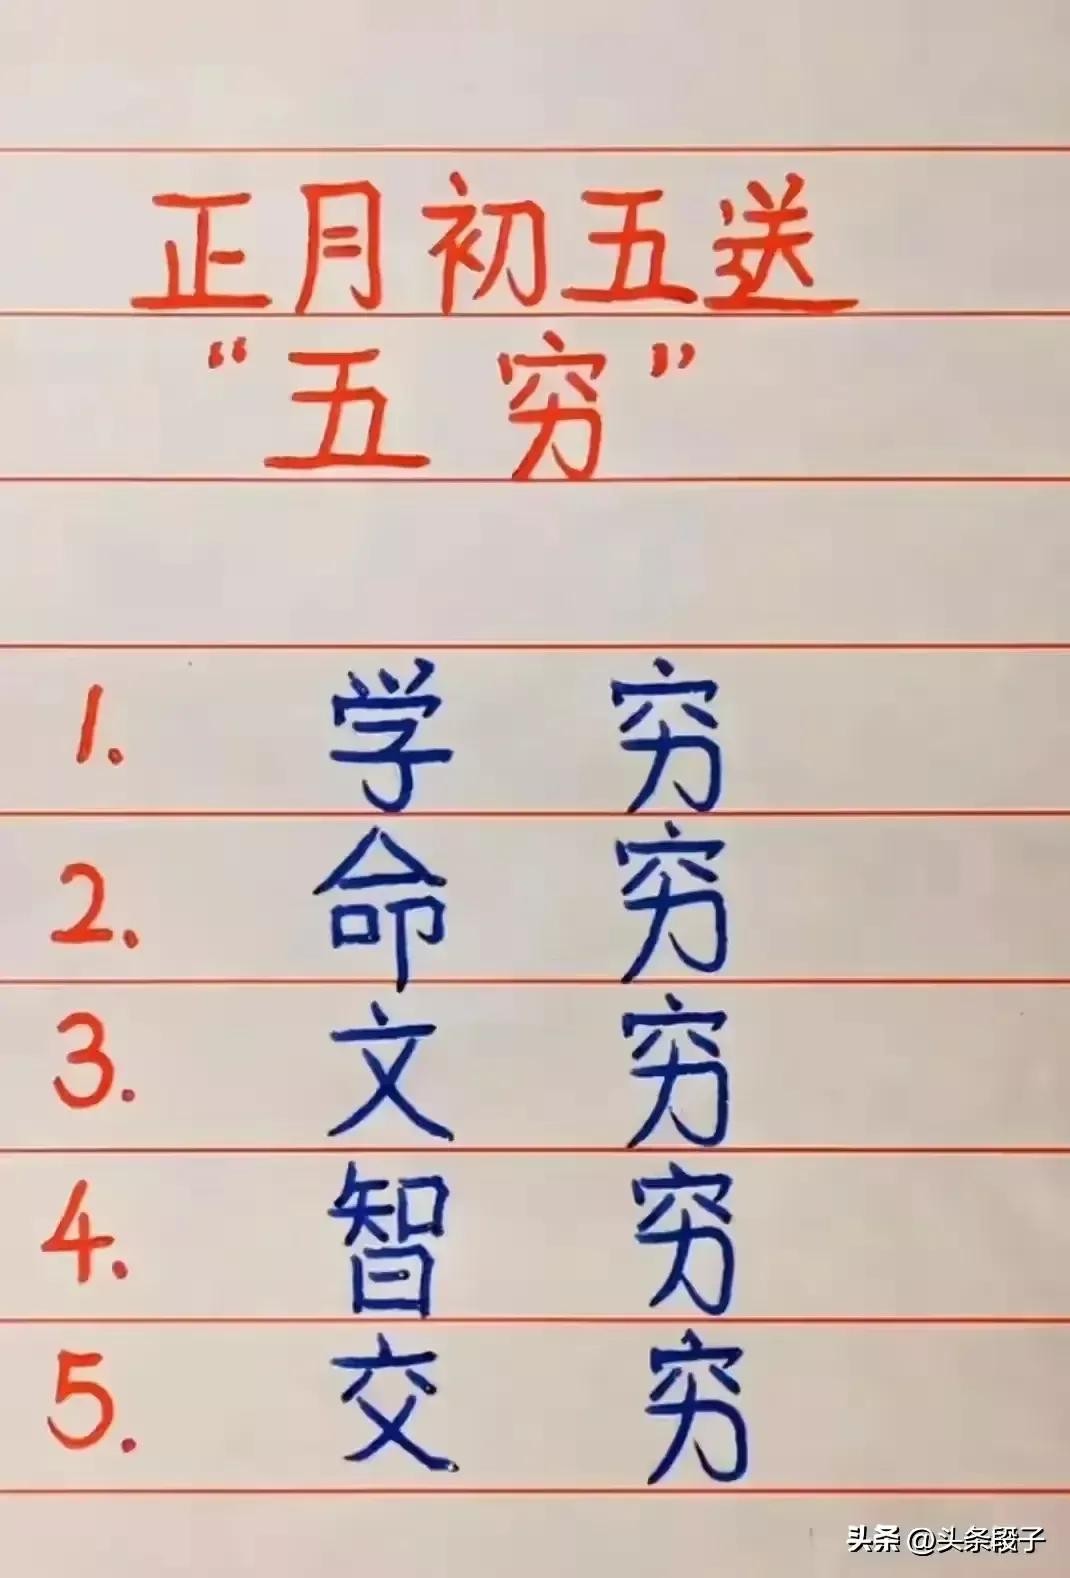 正月初五送
“五穷”
1. 学穷
2. 命穷
3. 文穷
4. 智穷
5. 交穷
头条 @头条段子